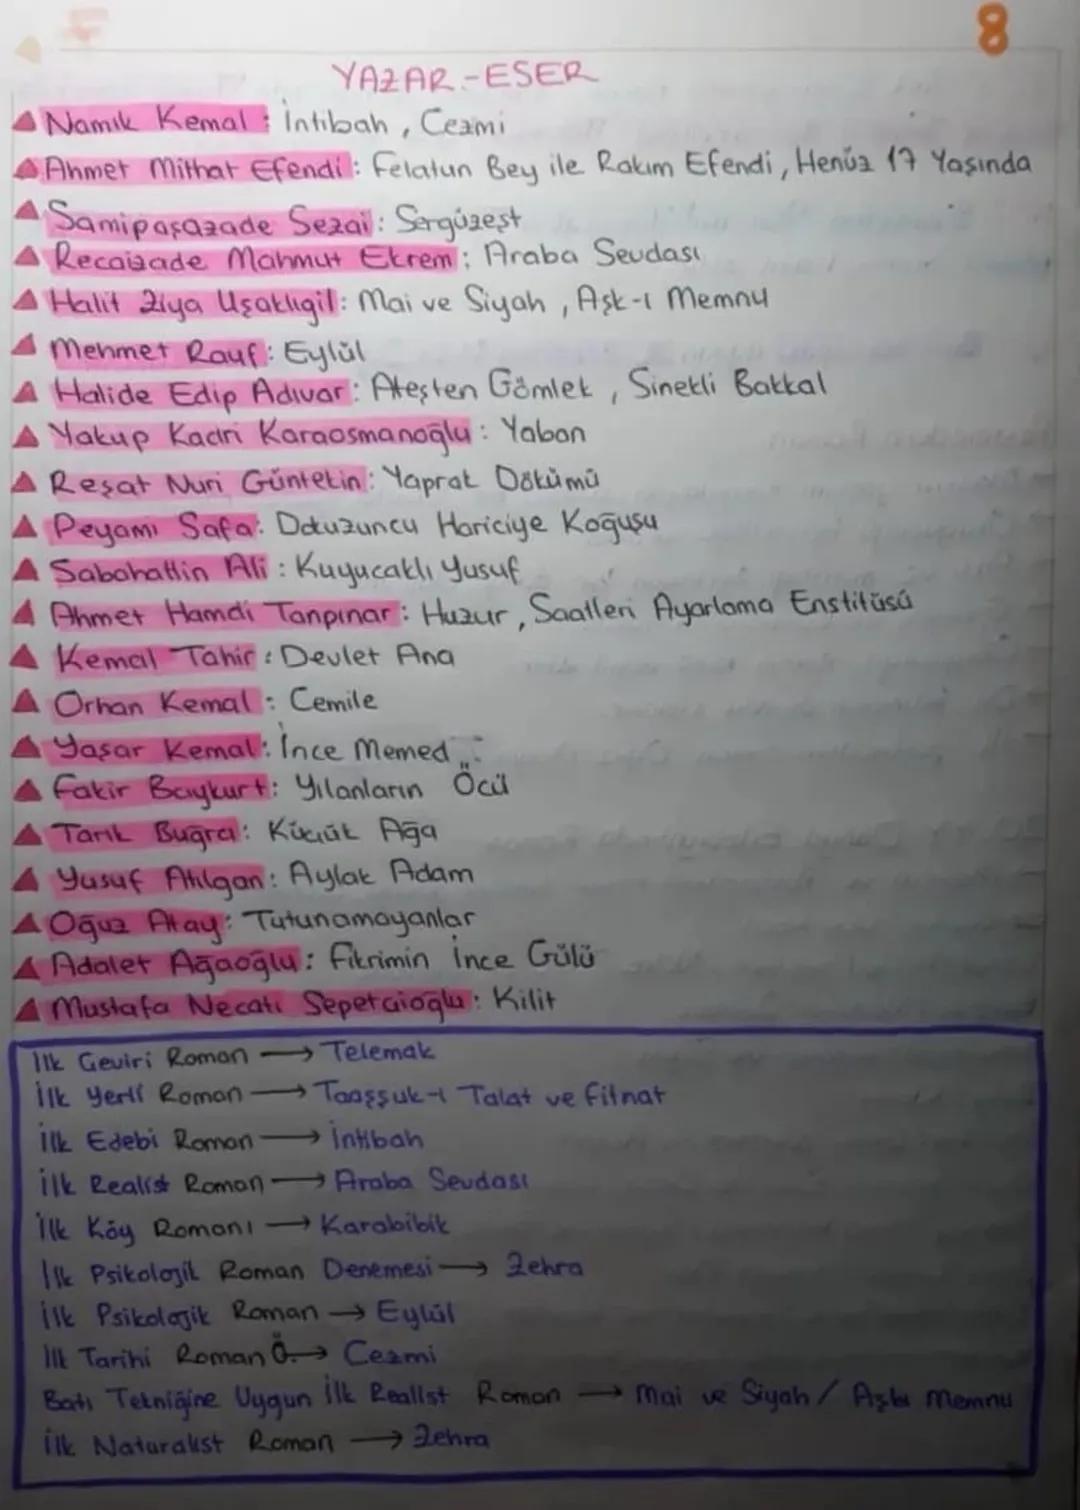 8
YAZAR-ESER
Namık Kemal: İntibah, Cezmi
Ahmet Mithat Efendi: Felatun Bey ile Rakım Efendi, Henüz 17 Yaşında
Samipaşazade Sezai: Sergüzeşt
Recaizade Mahmut Ekrem: Araba Sevdası
Halit Ziya Uşaklıgil: Mai ve Siyah, Aşk-ı Memnu
Mehmet Rauf: Eylül
Halide Edip Adıvar: Ateşten Gömlek, Sinekli Bakkal
Yakup Kadri Karaosmanoğlu: Yaban
Reşat Nuri Güntekin: Yaprak Dökümü
Peyami Safa: Dokuzuncu Hariciye Koğuşu
Sabahattin Ali: Kuyucaklı Yusuf
Ahmet Hamdi Tanpınar: Huzur, Saatleri Ayarlama Enstitüsü
Kemal Tahir: Devlet Ana
Orhan Kemal: Cemile
Yaşar Kemal: İnce Memed
Fakir Baykurt: Yılanların Öcü
Tarık Buğra: Küçük Ağa
Yusuf Atılgan: Aylak Adam
Oğuz Atay: Tutunamayanlar
Adalet Ağaoğlu: Fikrimin İnce Gülü
Mustafa Necati Sepetçioğlu: Kilit
İlk Çeviri Roman → Telemak
İlk Yerli Roman → Taaşşuk-ı Talat ve Fitnat
İlk Edebi Roman → İntibah
İlk Realist Roman → Araba Sevdası
İlk Köy Romanı → Karabibik
İlk Psikolojik Roman Denemesi → Zehra
İlk Psikolojik Roman → Eylül
İlk Tarihi Roman Ö. → Cezmi
Batı Tekniğine Uygun İlk Realist Roman → Mai ve Siyah / Aşkı Memnu
İlk Naturalist Roman → Zehra